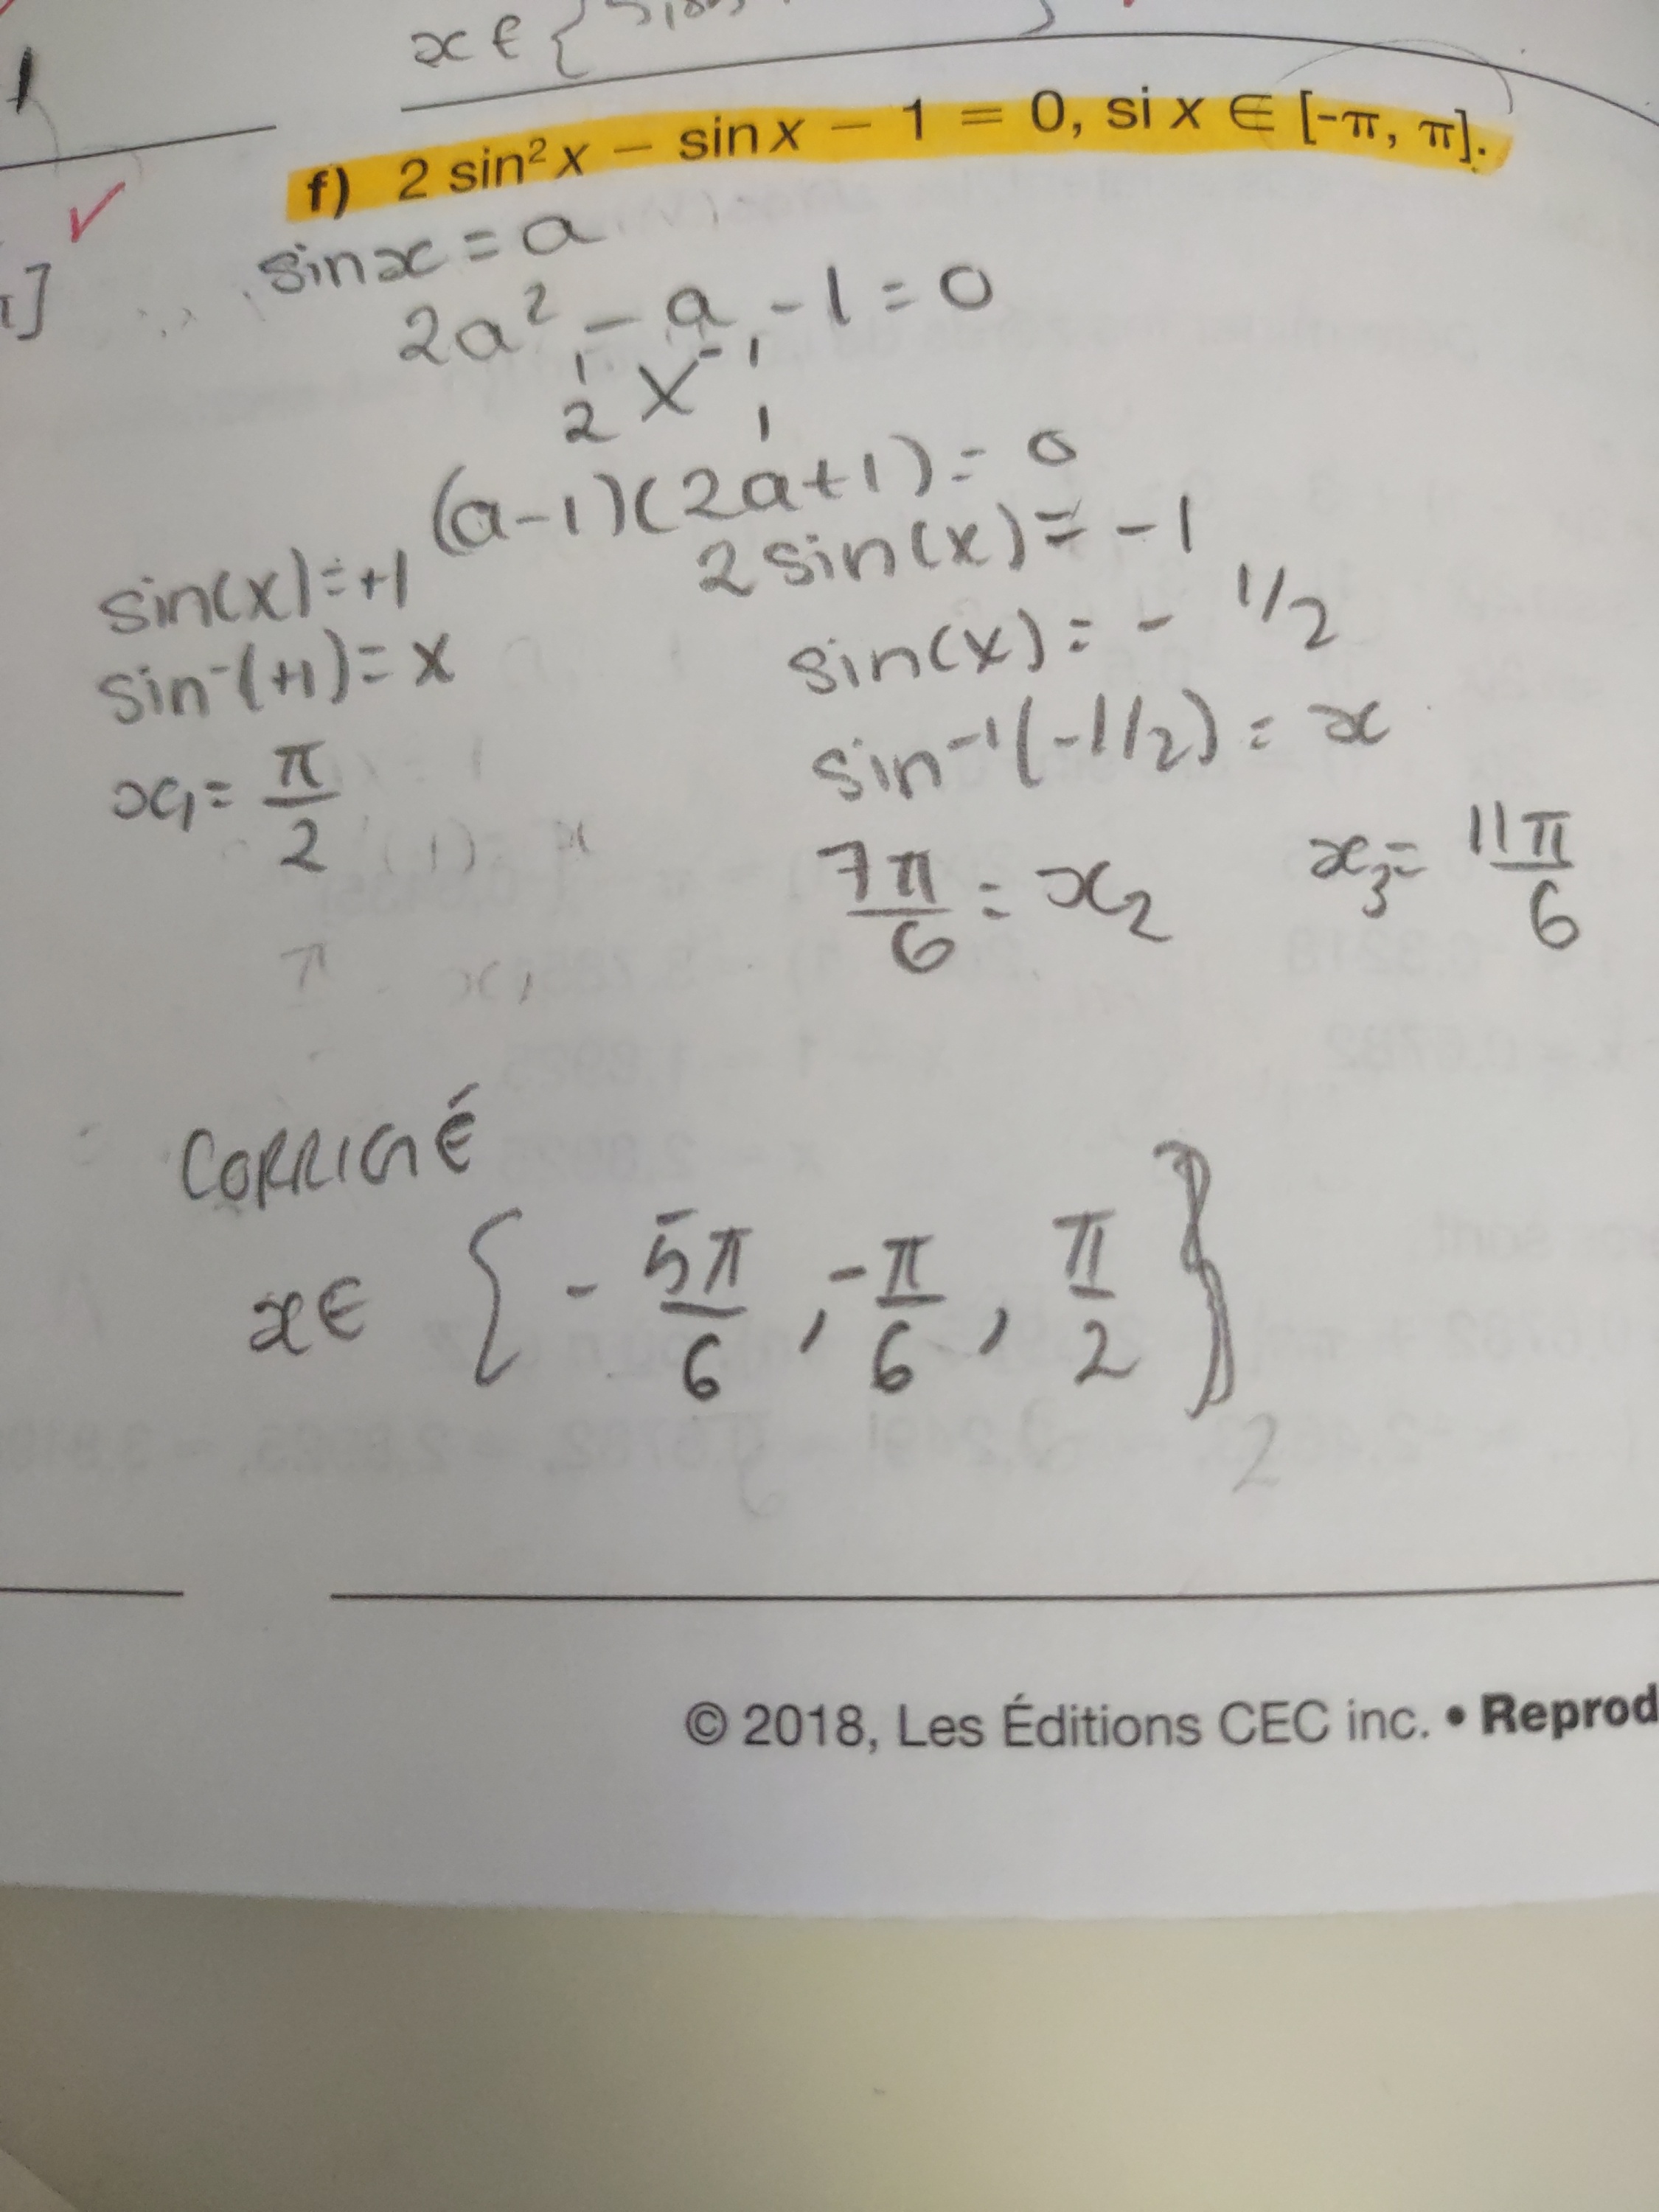 1
x ∈ {
f) 2 sin² x − sin x − 1 = 0, si x ∈ [-π, π].
]
sin x = a
2a² − a − 1 = 0
1 -1
2 X 1
(a-1)(2a+1) = 0
sin(x) = +1
2 sin(x) = -1
sin⁻(+1) = x
sin(x) = - 1/2
x₁ = π/2
sin⁻¹(-1/2) = x
7π/6 = x₂ x₃ = 11π/6
CORRIGÉ
x ∈ { - 5π/6 , -π/6 , π/2 }
© 2018, Les Éditions CEC inc. • Reprod